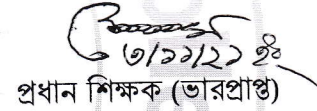 ৩/১১/২১ ইং
প্রধান শিক্ষক (ভারপ্রাপ্ত)